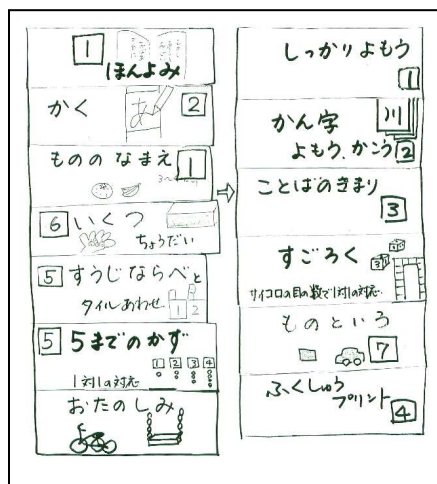 1
ほんよみ
かく
あ
2
もののなまえ
1
6
いくつ
ちょうだい
5
すうじならべと
タイルあわせ
1 2
5
5までのかず
1 2 3 4
1対1の対応
おたのしみ
しっかりよもう
1
かん字
川
よもう、かこう
2
ことばのきまり
3
すごろく
サイコロの目の数で1対1の対応
ものといろ
7
ふくしゅう
プリント
4